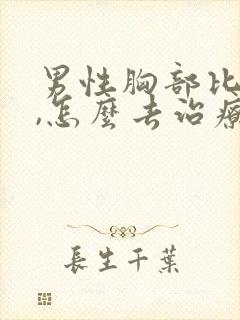 男性胸部比
,怎麼去治療
長生千葉